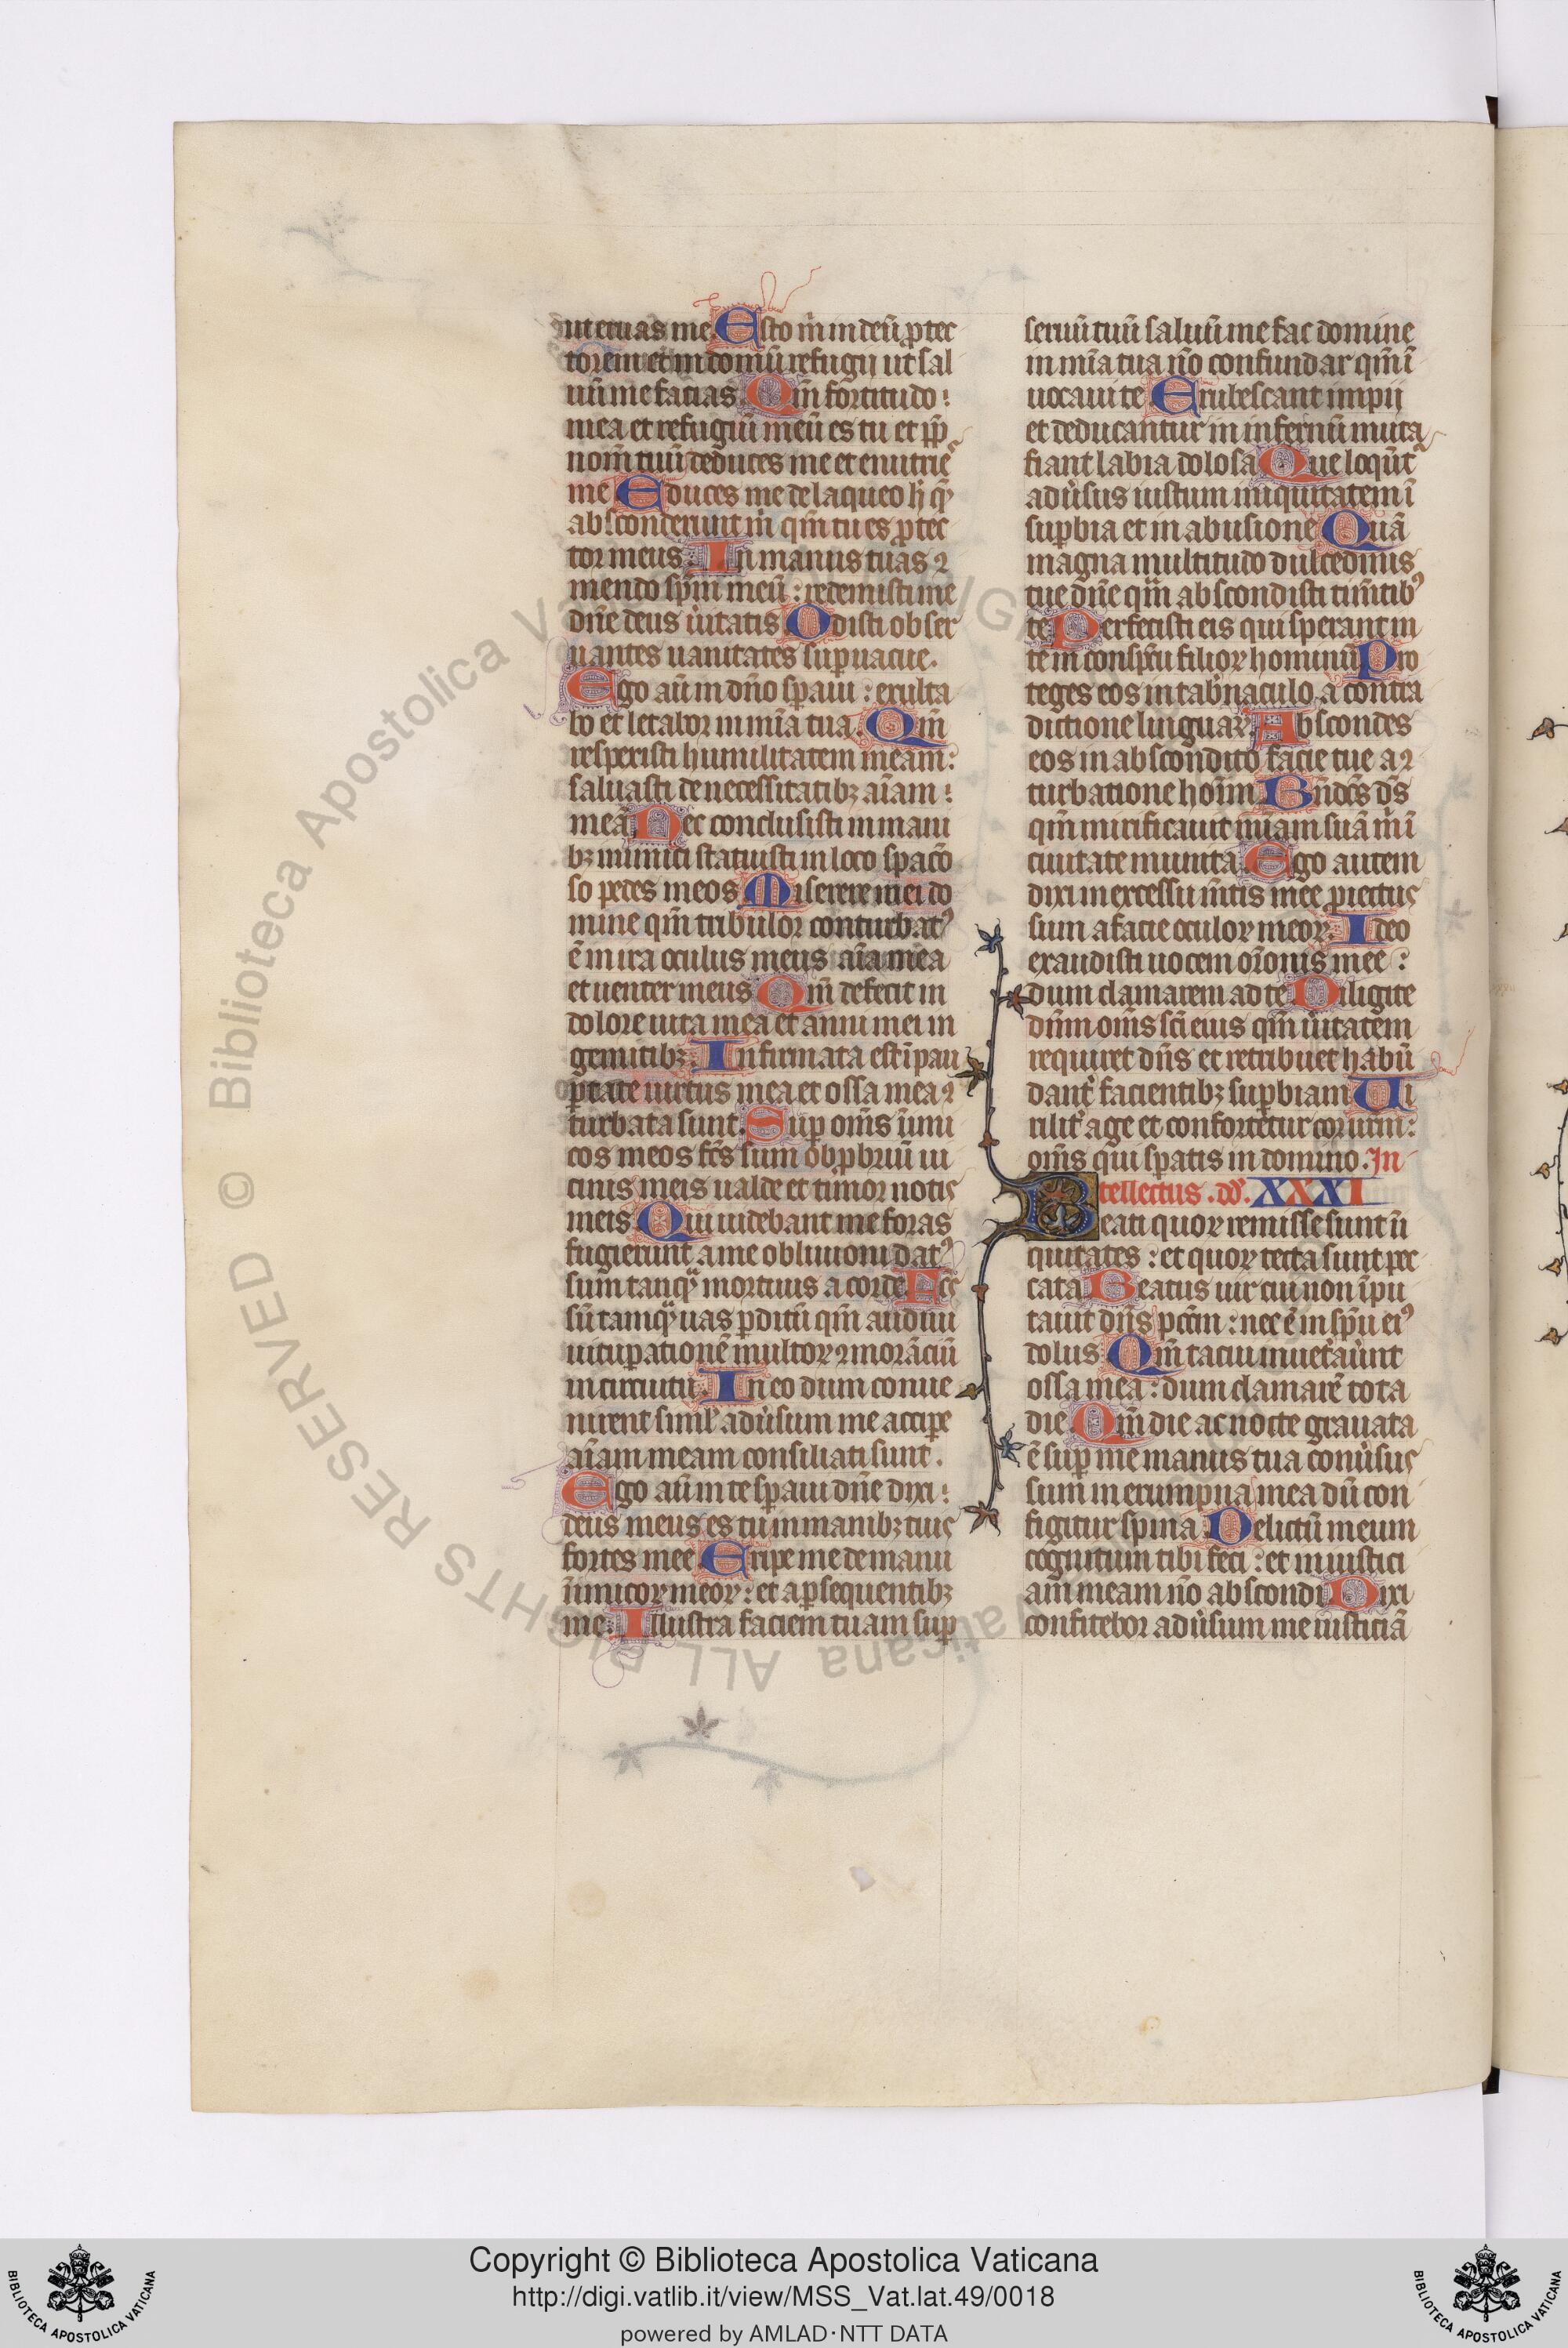 ut eruas me Esto m̄ in deū ꝓtec
torem et in domū refugii ut sal
uū me facias Qm̄ fortitudo
mea et refugiū meū es tu et ꝓp̄
nom̄ tuū deduces me et enutrie᷑
me Educes me de laqueo h̄ qͥ
absconderunt m̄ qm̄ tu es ꝓtec
tor meus In manus tuas ꝯ
mendo sp̄m meū : redemisti me
dn̄e deus u̓itatis Odisti obser
uantes uanitates suꝑuacue.
Ego aū in dn̄o sꝑaui : exulta
bo et letabor in mīa tua. Qm̄
respexisti humilitatem meam:
saluasti de necessitatibꝫ aīam
meā Nec conclusisti in mani
bꝫ inimici statuisti in loco spacō
so pedes meos Miserere mei do
mine qm̄ tribulor conturbatꝰ
ē in ira oculus meus aīa mea
et uenter meus Qm̄ defecit in
dolore uita mea et anni mei in
gemitibꝫ. Infirmata est ī pau
ꝑtate uirtus mea et ossa mea ꝯ
turbata sunt. Suꝑ om̄s īimi
cos meos fc̄s sum obꝓbriū ui
cinis meis ualde et timor notis
meis Qui uidebant me foras
fugierunt a me obliuioni datꝰ
sum tanqͣ mortuus a corde Fc̄s
sū tamqͣ uas ꝑditū qm̄ audiui
uituꝑationē multoꝝ ꝯmorāciū
in circuitu. In eo dum conue
nirent simul̓ adu̓sum me accipe
aīam meam consiliati sunt.
Ego aū in te sꝑaui dn̄e dixi
deus meus es tu in manibꝫ tuis
sortes mee Eripe me de manu
īimicoꝝ meoꝝ : et a ꝑsequentibꝫ
me. Illustra faciem tuam suꝑ
seruū tuū saluū me fac domine
in mīa tua nō confundar qm̄ ī
uocaui te Erubescant impii
et deducantur in infernū muta
fiant labia dolosa Que loqūt᷑
adu̓sus iustum iniquitatem ī
suꝑbia et in abusione Quā
magna multitudo dulcedinis
tue dn̄e qͣm abscondisti tim̄tibꝰ
te Perfecisti eis qui sperant in
te in conspc̄u filioꝝ hominū Pro
teges eos in tab̓naculo a contra
dictione linguaꝝ. Abscondes
eos in abscondito facie tue a ꝯ
turbatione hoīm Bn̄dc̄s dn̄s
qm̄ mirificauit mīam suā m̄ ī
ciuitate munita Ego autem
dixi in excessu m̄tis mee ꝓiectus
sum a facie oculoꝝ meoꝝ. Ideo
exaudisti uocem or̄onis mee :
dum clamarem ad te Diligite
dn̄m om̄s sc̄i eius qm̄ u̓itatem
requiret dn̄s et retribuet habū
dant᷑ facientibꝫ suꝑbiam Ui
rilit᷑ age et confortetur cor ur̄m:
om̄s qui sꝑatis in domino. In
tellectus . dd̄. XXXI
Beati quoꝝ remisse sunt īi
quitates : et quoꝝ tecta sunt pec
cata Beatus uir cui non īpu
tauit dn̄s pcc̄m : nec ē in sp̄u eiꝰ
dolus Qm̄ tacui inuet᷑au̓unt
ossa mea : dum clamarē tota
die Qm̄ die ac nocte grauata
ē suꝑ me manus tua conu̓sus
sum in erumpna mea dū con
figitur spina Delictū meum
cognitum tibi feci : et iniustici
am meam nō abscondi Dixi
confitebor adu̓sum me iusticiā
Copyright © Biblioteca Apostolica Vaticana
http://digi.vatlib.it/view/MSS_Vat.lat.49/0018
powered by AMLAD·NTT DATA
BIBLIOTECA APOSTOLICA VATICANA
BIBLIOTECA APOSTOLICA VATICANA
© Biblioteca Apostolica Vaticana ALL RIGHTS RESERVED